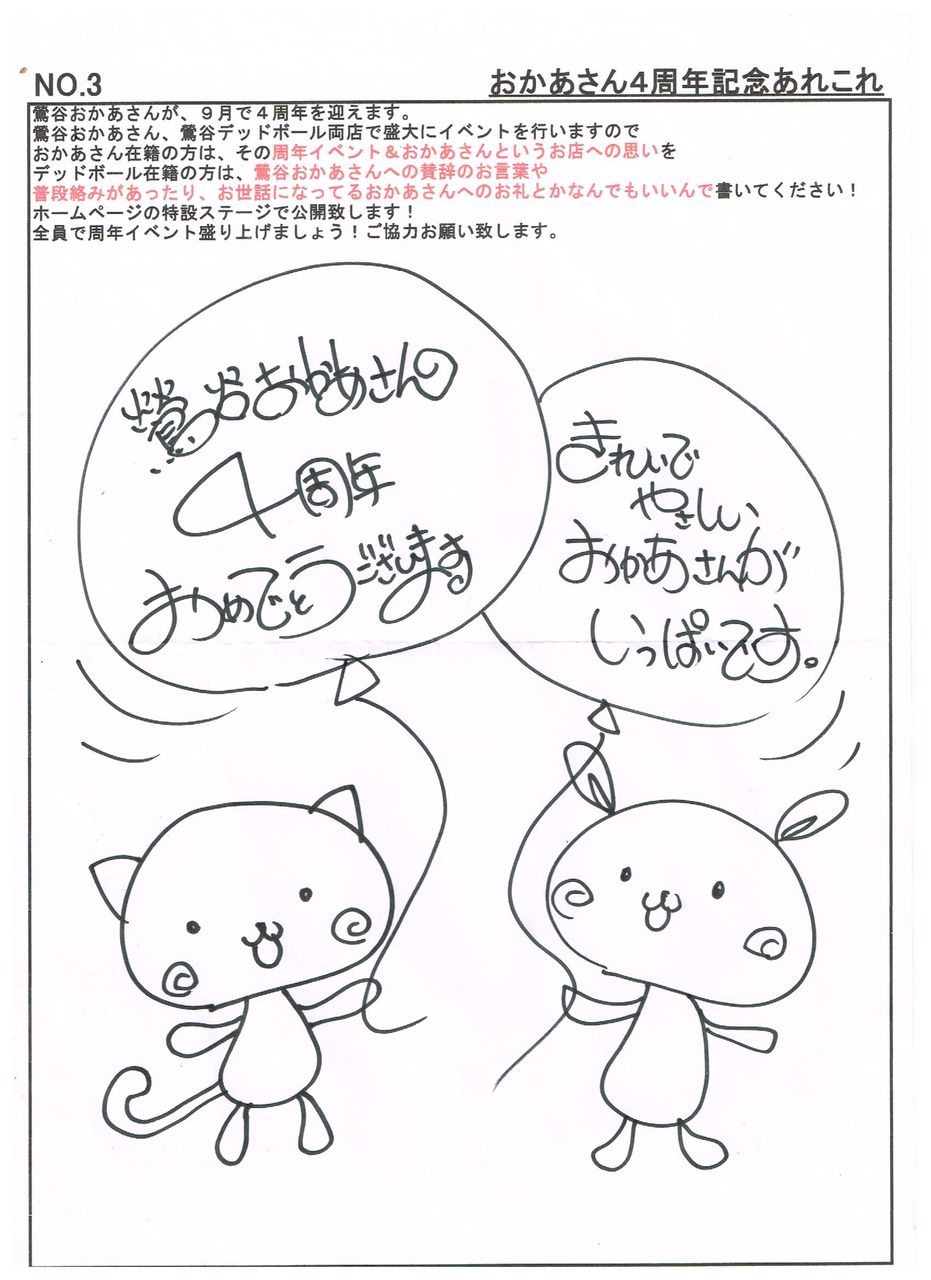 NO.3
おかあさん４周年記念あれこれ
鶯谷おかあさんが、９月で４周年を迎えます。
鶯谷おかあさん、鶯谷デッドボール両店で盛大にイベントを行いますので
おかあさん在籍の方は、その周年イベント＆おかあさんというお店への思いを
デッドボール在籍の方は、鶯谷おかあさんへの賛辞のお言葉や
普段絡みがあったり、お世話になってるおかあさんへのお礼とかなんでもいいんで書いてください！
ホームページの特設ステージで公開致します！
全員で周年イベント盛り上げましょう！ご協力お願い致します。
鶯谷おかあさんの
4周年
おめでとうございます
きれいで
やさしい
おかあさんが
いっぱいです。